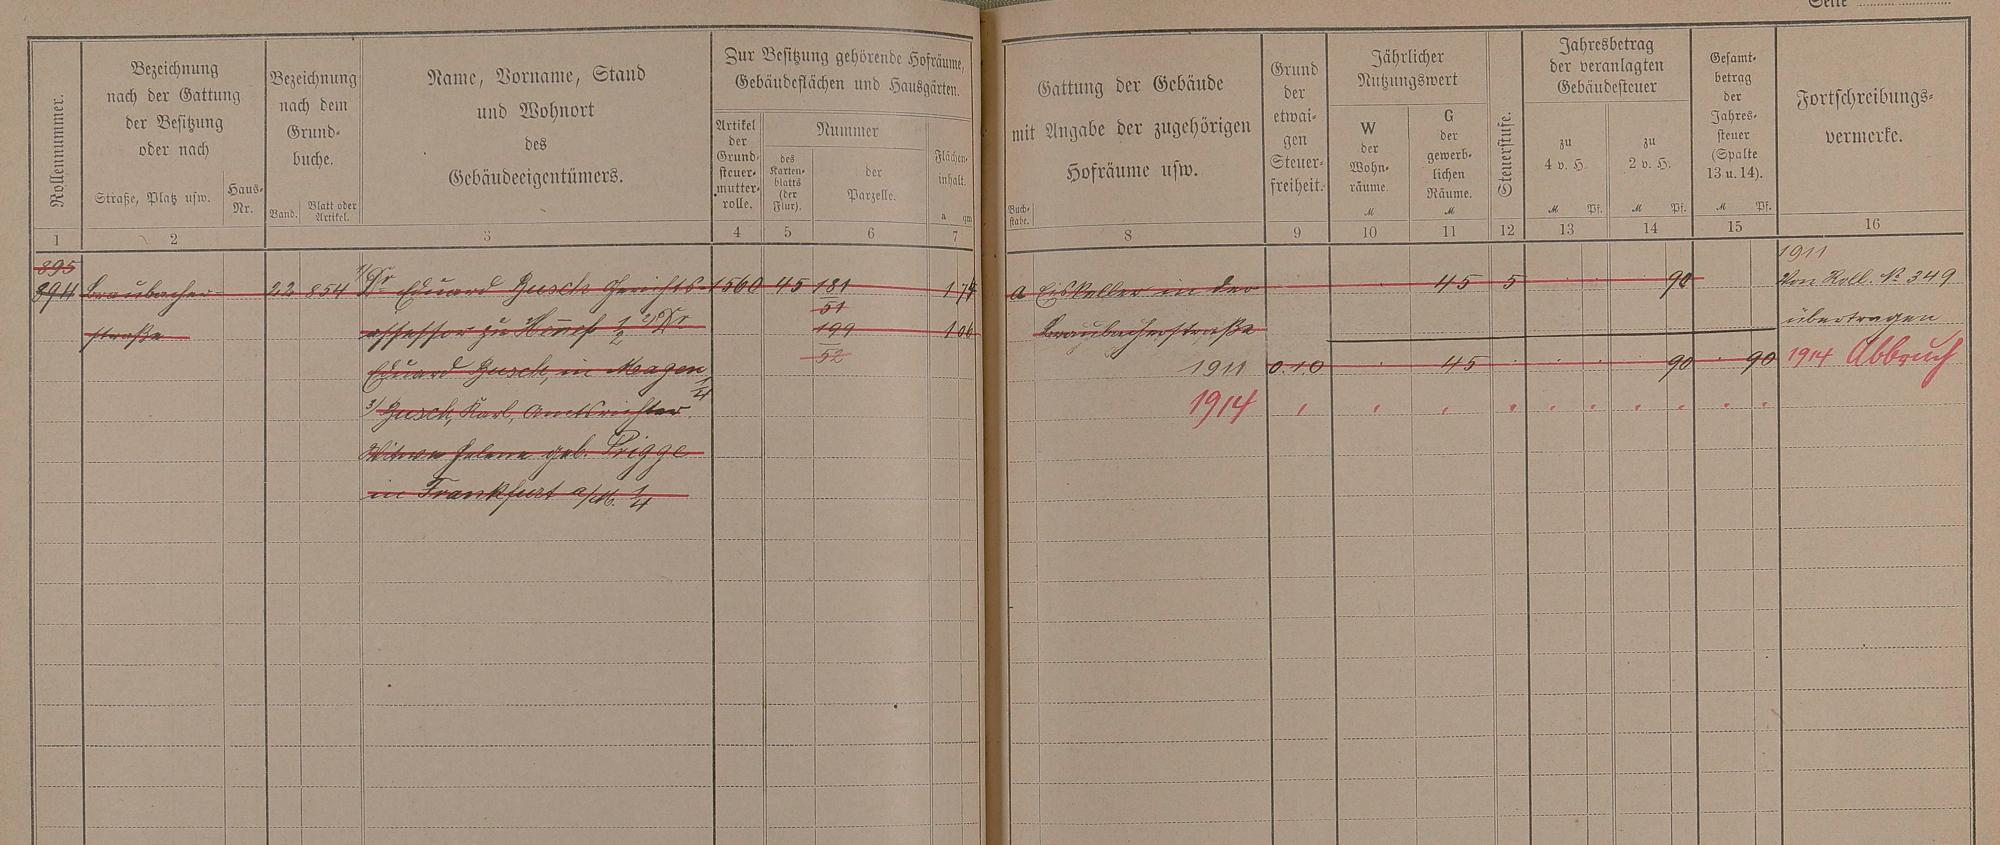 Seite
Rollennummer.
Bezeichnung
nach der Gattung
der Besitzung
oder nach
Straße, Platz usw.
Haus-
Nr.
Bezeichnung
nach dem
Grund-
buche.
Band.
Blatt oder
Artikel.
Name, Vorname, Stand
und Wohnort
des
Gebäudeeigentümers.
Zur Besitzung gehörende Hofräume,
Gebäudeflächen und Hausgärten.
Artikel
der
Grund-
steuer-
mutter-
rolle.
Nummer
des
Karten-
blatts
(der
Flur).
der
Parzelle.
Flächen-
inhalt.
a qm
1 2 3 4 5 6 7
895
894 Braubacher- 22 854 1/ Dr. Eduard Busch Gerichts- 1560 45 181 1 74
51
straße assessor zu 1/2 2/ Dr 199 1 06
52
Eduard Busch, in
1/4
3/ Busch, Karl, Amtsrichter
Witwe Helene geb. Trigge
in Frankfurt a/M. 1/4
Gattung der Gebäude
mit Angabe der zugehörigen
Hofräume usw.
Buch-
stabe.
Grund
der
etwai-
gen
Steuer-
freiheit.
Jährlicher
Nutzungswert
W
der
Wohn-
räume.
M
G
der
gewerb-
lichen
Räume.
M
Steuerstufe.
Jahresbetrag
der veranlagten
Gebäudesteuer
zu
4 v. H.
M Pf.
zu
2 v. H.
M Pf.
Gesamt-
betrag
der
Jahres-
steuer
(Spalte
13 u. 14).
M Pf.
Fortschreibungs-
vermerke.
8 9 10 11 12 13 14 15 16
1911
a Eiskeller in der 45 5 90 Von Roll. No 349
Braubacherstraße übertragen
1911 0.10 45 90 90 1914 Abbruch
1914